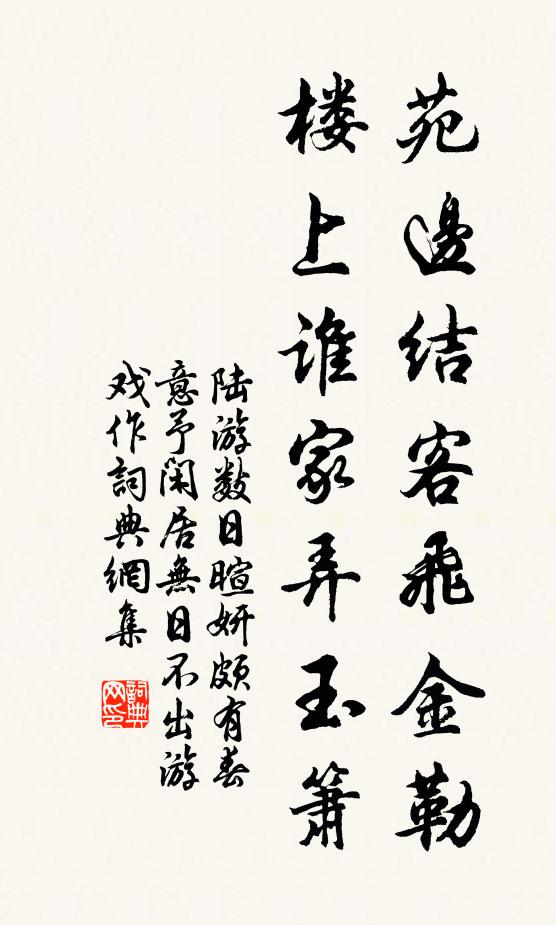 苑邊結客飛金勒
楼上谁家弄玉箫
陆游数日暄妍颇有春
意予闲居無日不出游
戏作詞典網集
詞典
网印